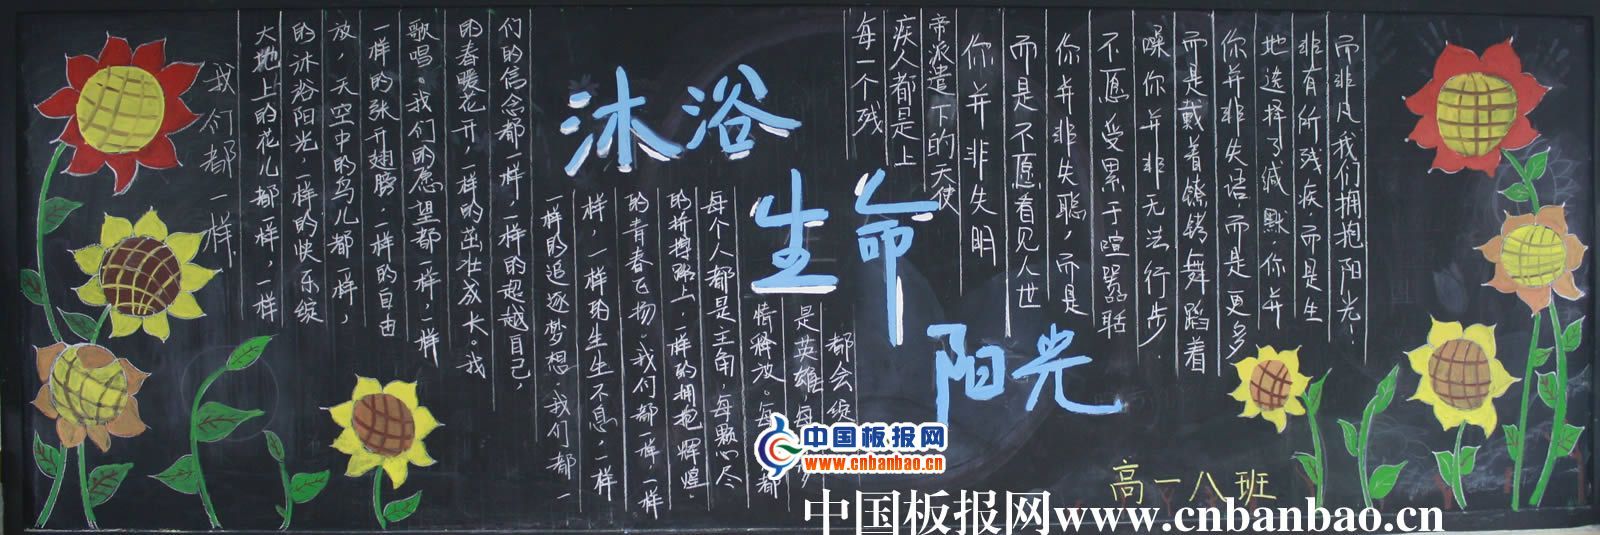 沐浴
生命
阳光
我们都一样.
大地上的花儿都一样,一样
的沐浴阳光,一样的快乐绽
放,天空中的鸟儿都一样,
一样的张开翅膀.一样的自由
歌唱。我们的愿望都一样,一样
的春暖花开,一样的茁壮成长。我
们的信念都一样,一样的超越自己,
一样的追逐梦想.我们都一
样,一样的生生不息,一样
的青春飞扬.我们都一样,一样
的拼搏路上,一样的拥抱辉煌.
每个人都是主角,每颗心尽
情释放。每 都
是英雄,每
都会绽
每一个残
疾人都是上
帝派遣下的天使
你并非失明
而是不愿看见人世
你并非失聪,而是
不愿受累于喧嚣聒
噪你并非无法行步.
而是戴着镣铐舞蹈着
你并非失语而是更多
地选择了缄默.你并
非有所残疾,而是生
而非凡我们拥抱阳光!
高一八班
中国板报网
www.cnbanbao.cn
中国板报网www.cnbanbao.cn